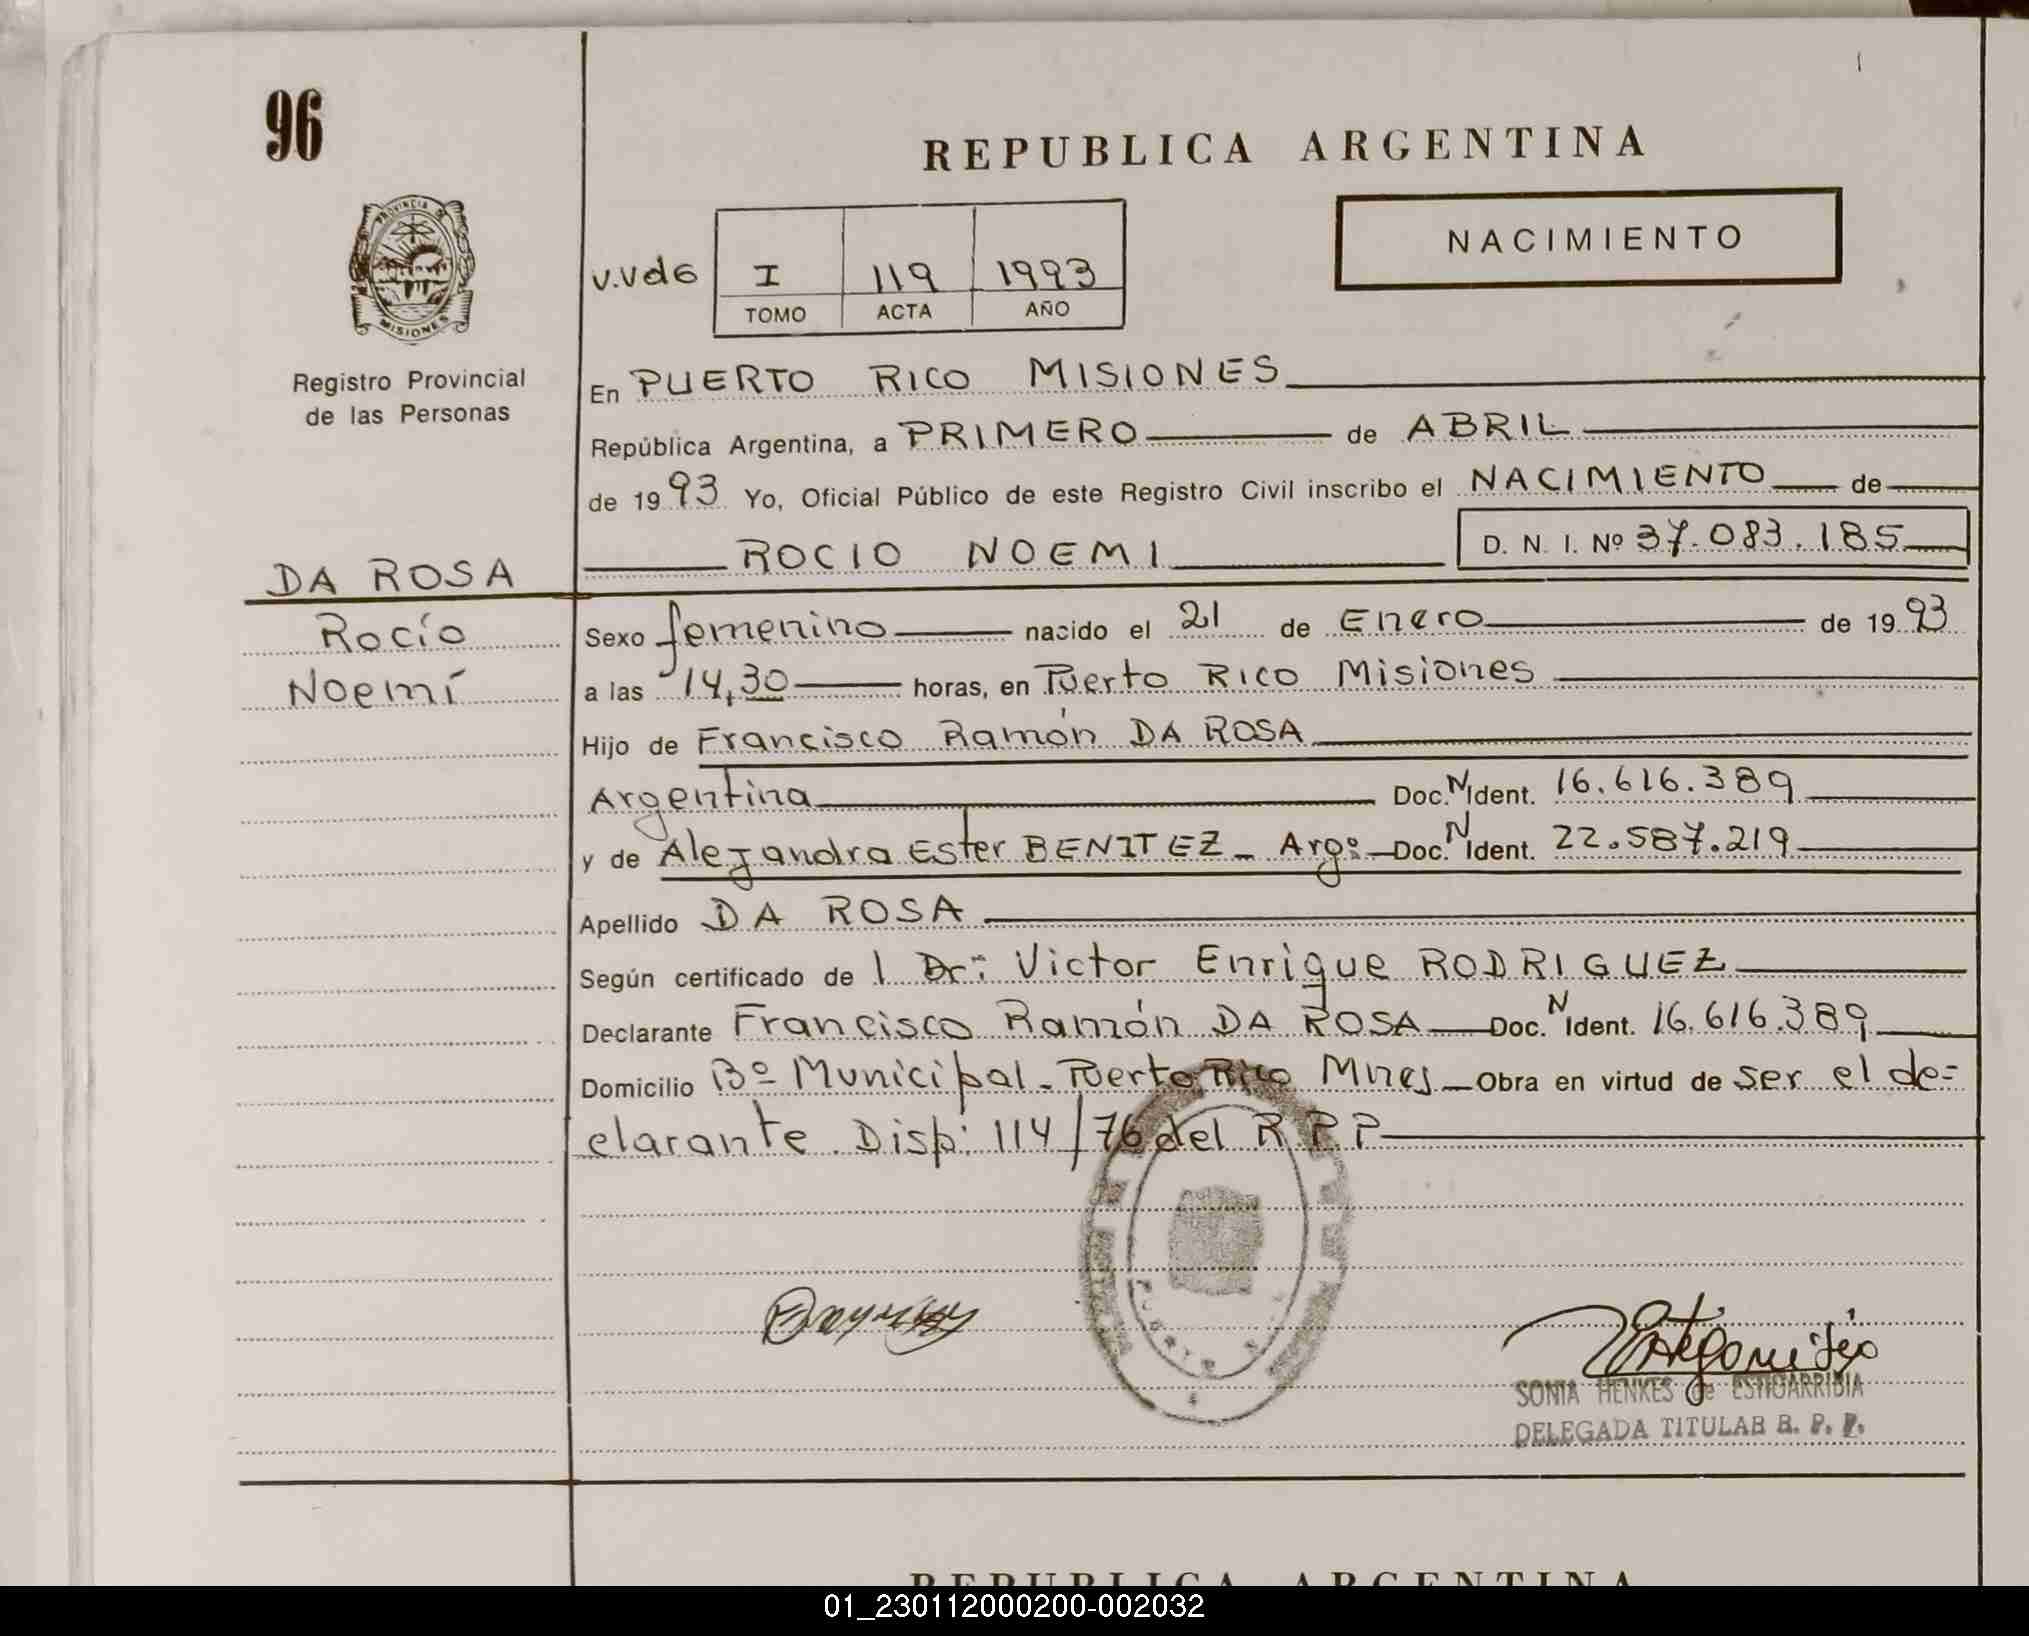 96
REPUBLICA ARGENTINA
PROVINCIA DE
MISIONES
NACIMIENTO
V.Vde
I 119 1993
TOMO ACTA AÑO
Registro Provincial
de las Personas
En PUERTO RICO MISIONES
República Argentina, a PRIMERO de ABRIL
de 1993 Yo, Oficial Público de este Registro Civil inscribo el NACIMIENTO de
ROCIO NOEMI D. N. I. Nº 37.083.185
DA ROSA
Rocío
Noemí
Sexo femenino nacido el 21 de Enero de 1993
a las 14,30 horas, en Puerto Rico Misiones
Hijo de Francisco Ramón DA ROSA
Argentina Doc. N Ident. 16.616.389
y de Alejandra Ester BENITEZ - Argº Doc. N Ident. 22.587.219
Apellido DA ROSA
Según certificado de l Dr: Victor Enrique RODRIGUEZ
Declarante Francisco Ramón DA ROSA Doc. N Ident. 16.616.389
Domicilio Bº Municipal - Puerto Rico Mnes Obra en virtud de ser el de=
clarante. Disp: 114/76 del R.P.P
SONIA HENKES de ESTIGARRIBIA
DELEGADA TITULAR R. P. P.
REPUBLICA ARGENTINA
01_230112000200-002032